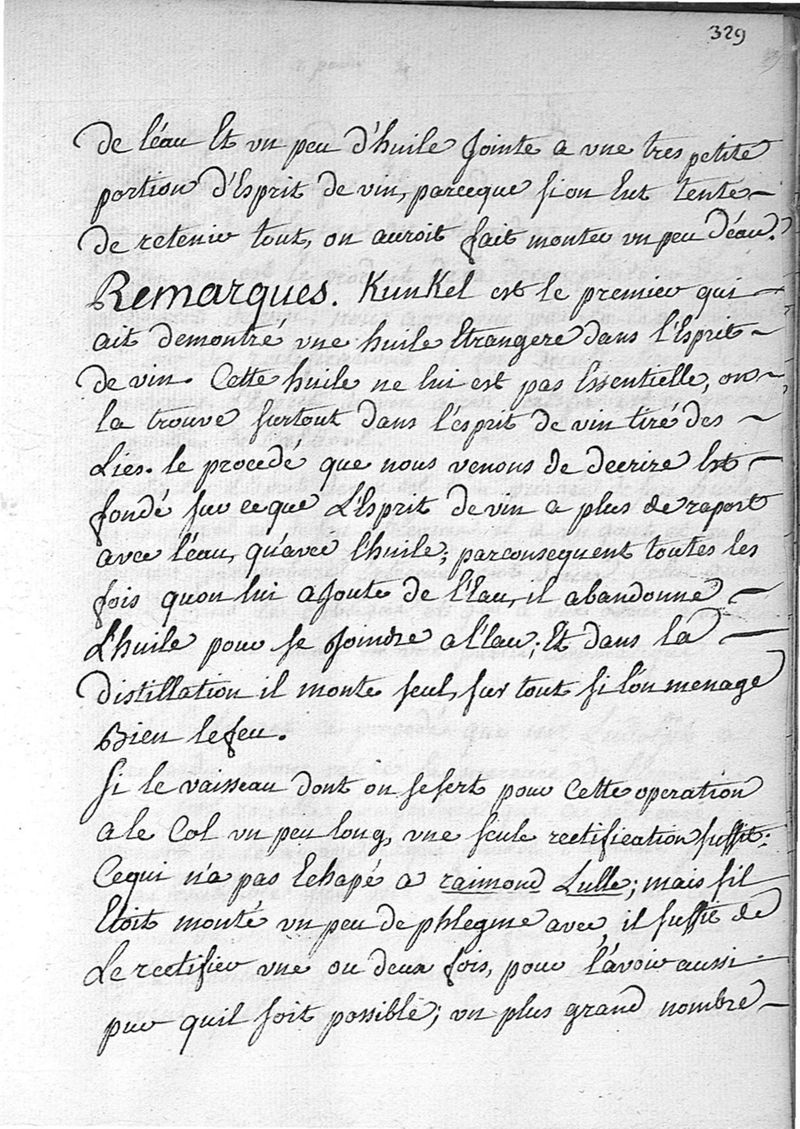 329
de léau Et vn peu d'huile Jointe a vne tres petite
portion d'Esprit de vin, parceque si on Eut tenté
de retenir tout, on auroit fait monter vn peu déau.
Remarques. Kunkel est le premier qui
ait demontré vne huile Etrangere dans l'Esprit
de vin. Cette huile ne lui est pas Essentielle, on
la trouve surtout dans l'ésprit de vin tiré des
Lies. le procedé que nous venons de decrire Est
fondé sur ceque L'Esprit de vin a plus de raport
avec leau, qu'avec l'huile; parconsequent toutes les
fois quon lui ajoute de l'Eau, il abandonne
L'huile pour se Joindre a l'Eau; Et dans la
distillation il monte seul, sur tout si l'on menage
Bien le feu.
Si le vaisseau dont on se sert pour Cette operation
a le Col vn peu long, vne seule rectification suffit:
Cequi n'a pas Echapé a raimond Lulle; mais s'il
Etoit monté vn peu de phlegme avec, il suffit de
Le rectifier vne ou deux fois, pour l'avoir aussi
pur quil soit possible; vn plus grand nombre